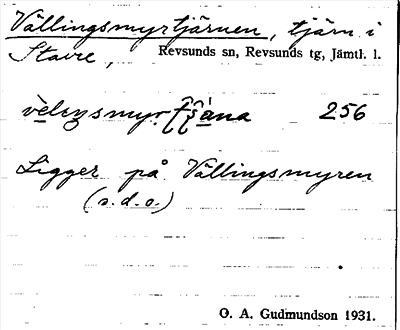 Vällingsmyrtjärnen, tjärn i
Stavre, Revsunds sn, Revsunds tg, Jämtl. l.
256
Ligger på Vällingsmyren
(s.d.o.)
O. A. Gudmundson 1931.